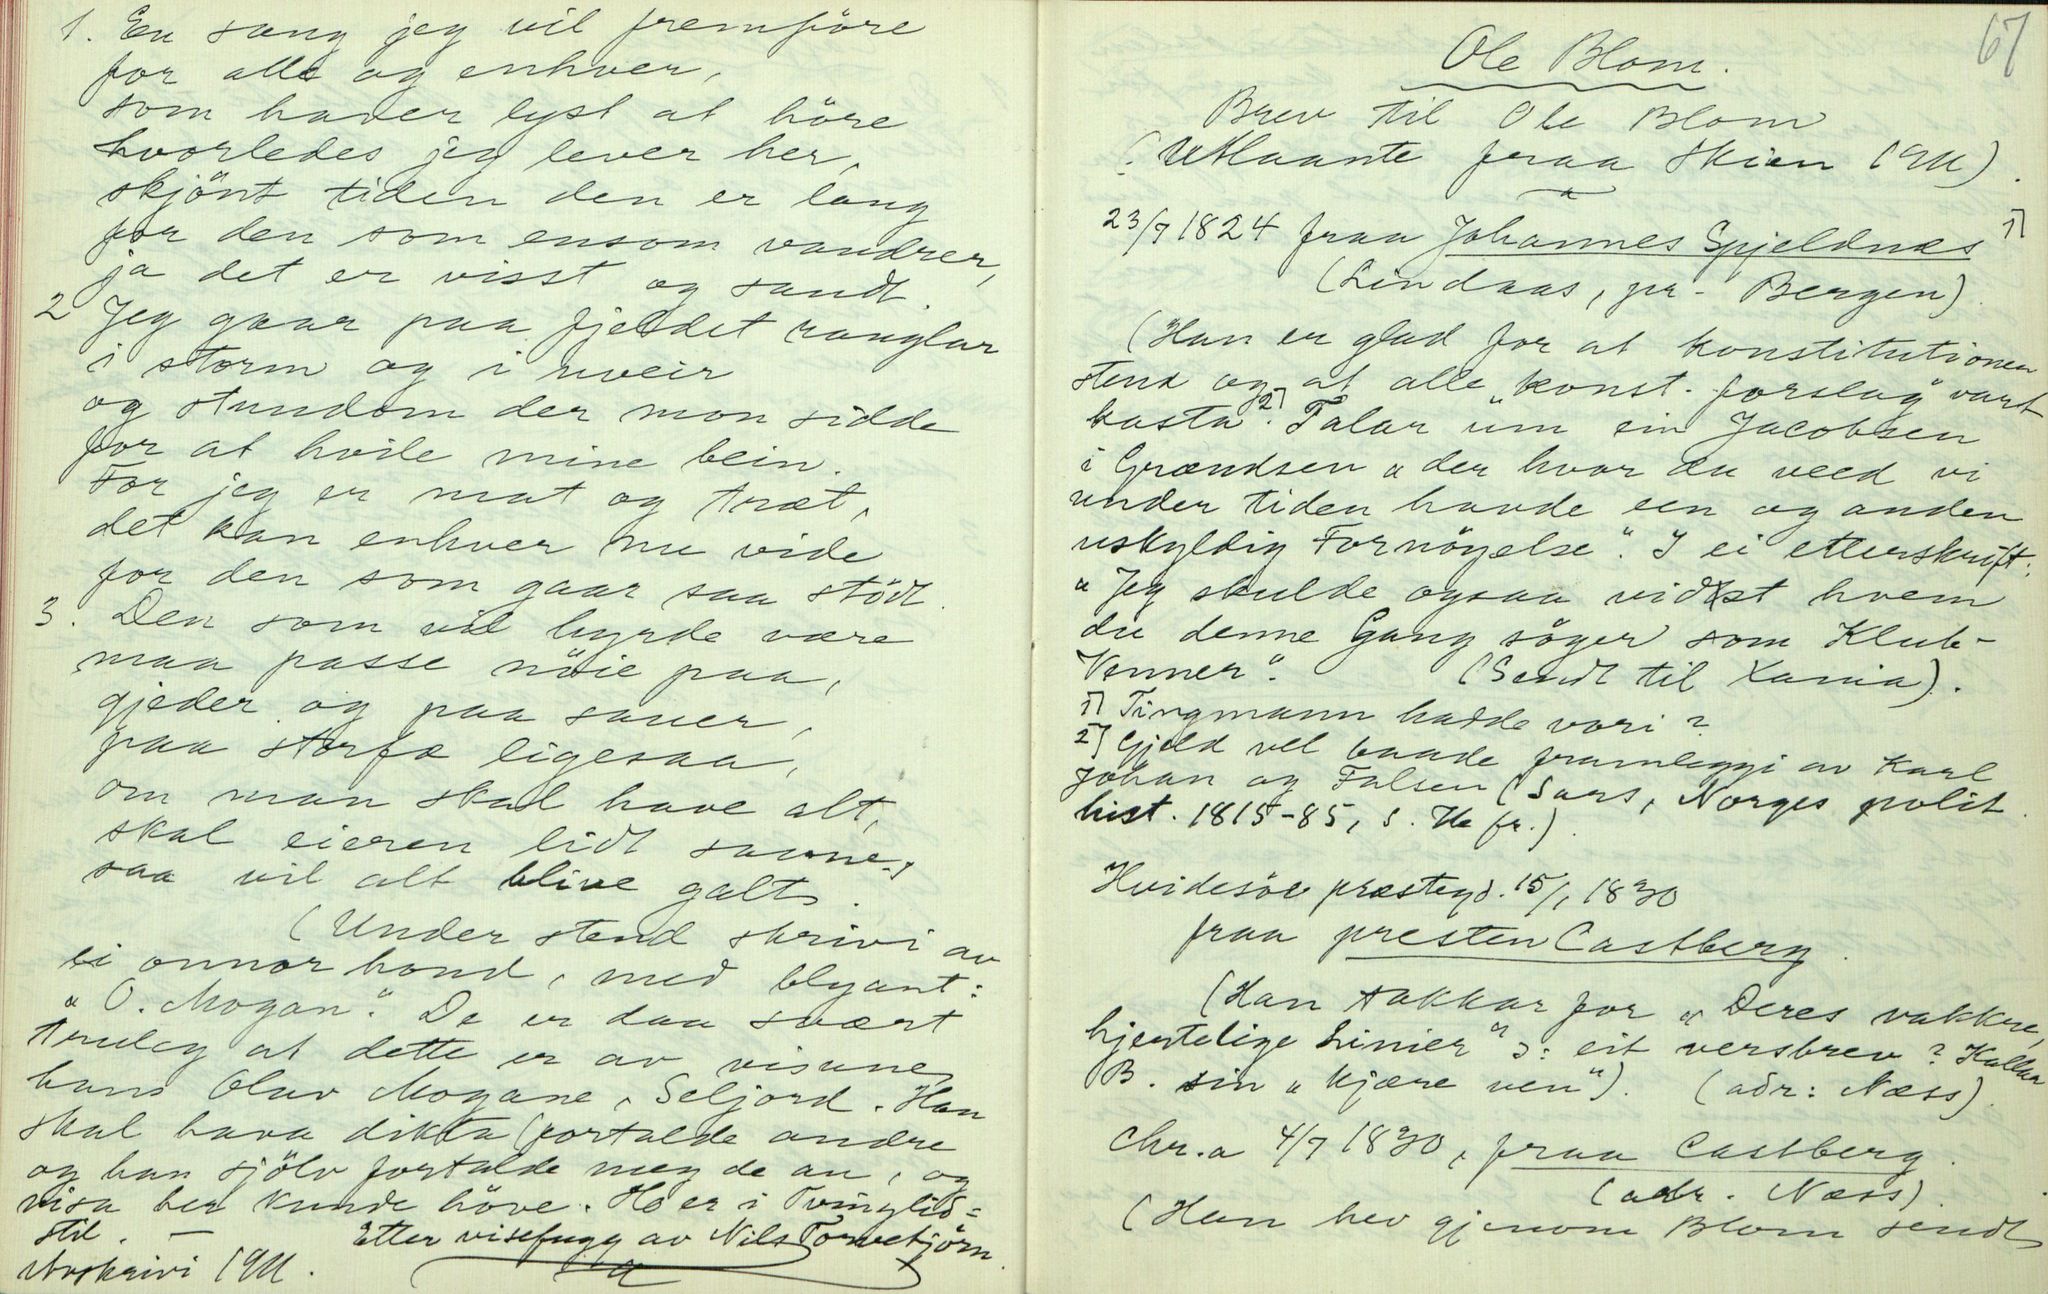 1. En sang jeg vil fremföre
for alle og enhver,
som haver lyst at höre
hvorledes jeg lever her,
skjönt tiden den er lang
for den som ensom vandrer,
ja det er visst og sandt.
2 Jeg gaar paa fjeldet ranglar
i storm og i uveir
og stundom der mon sidde
for at hvile mine bein.
For jeg er mat og træt,
det kan enhver nu vide
for den som gaar saa stödt.
3. Den som vil hyrde være
maa passe nöie paa,
gjeder og paa sauer,
paa storfæ ligesaa,
om man skal have alt,
skal eieren lidt savne,
saa vil alt blive galt.
(Under stend skrivi av
ei onnor hond, med blyant:
"O. Mogan". De er daa svært
truleg at dette er av visune
hans Olav Mogane, Seljord. Han
skal hava dikta (fortalde andre
og han sjölv fortalde meg de au, og
visa her kunde höve. Ho er i Tvinglid=
stil. —
Etter visefugg av Nils Torvetjörn.
Avskrivi 1911.
67
Ole Blom.
Brev til Ole Blom
(Utlaante fraa Skien 1911).
23/7 1824 fraa Johannes Spjeldnæs 1)
(Lindaas, pr. Bergen).
(Han er glad for at konstitutionen
stend og at alle "konst. forslag" vart
kasta 2). Talar um ein Jacobsen
i Grændsen "der hvor du veed vi
under tiden havde een og anden
uskyldig Fornöyelse". I ei etterskrift:
"Jeg skulde ogsaa vidst hvem
du denne Gang söger som Klub-
Venner". (Sendt til Xania).
1) Tingmann hadde vori?
2) Gjeld vel baade framleggi av Karl
Johan og Falsen (Sars, Norges polit.
hist. 1815-85, s. fr.).
Hvidesöe præstegd. 15/1 1830
fraa presten Castberg.
(Han takkar for "Deres vakkre,
hjertelige Linier" ɔ: eit versbrev? Kallar
B. sin "kjære ven"). (adr: Næss).
Chr.a 4/7 1830, fraa Castberg.
(adr. Næss)
(Han hev gjenom Blom sendt